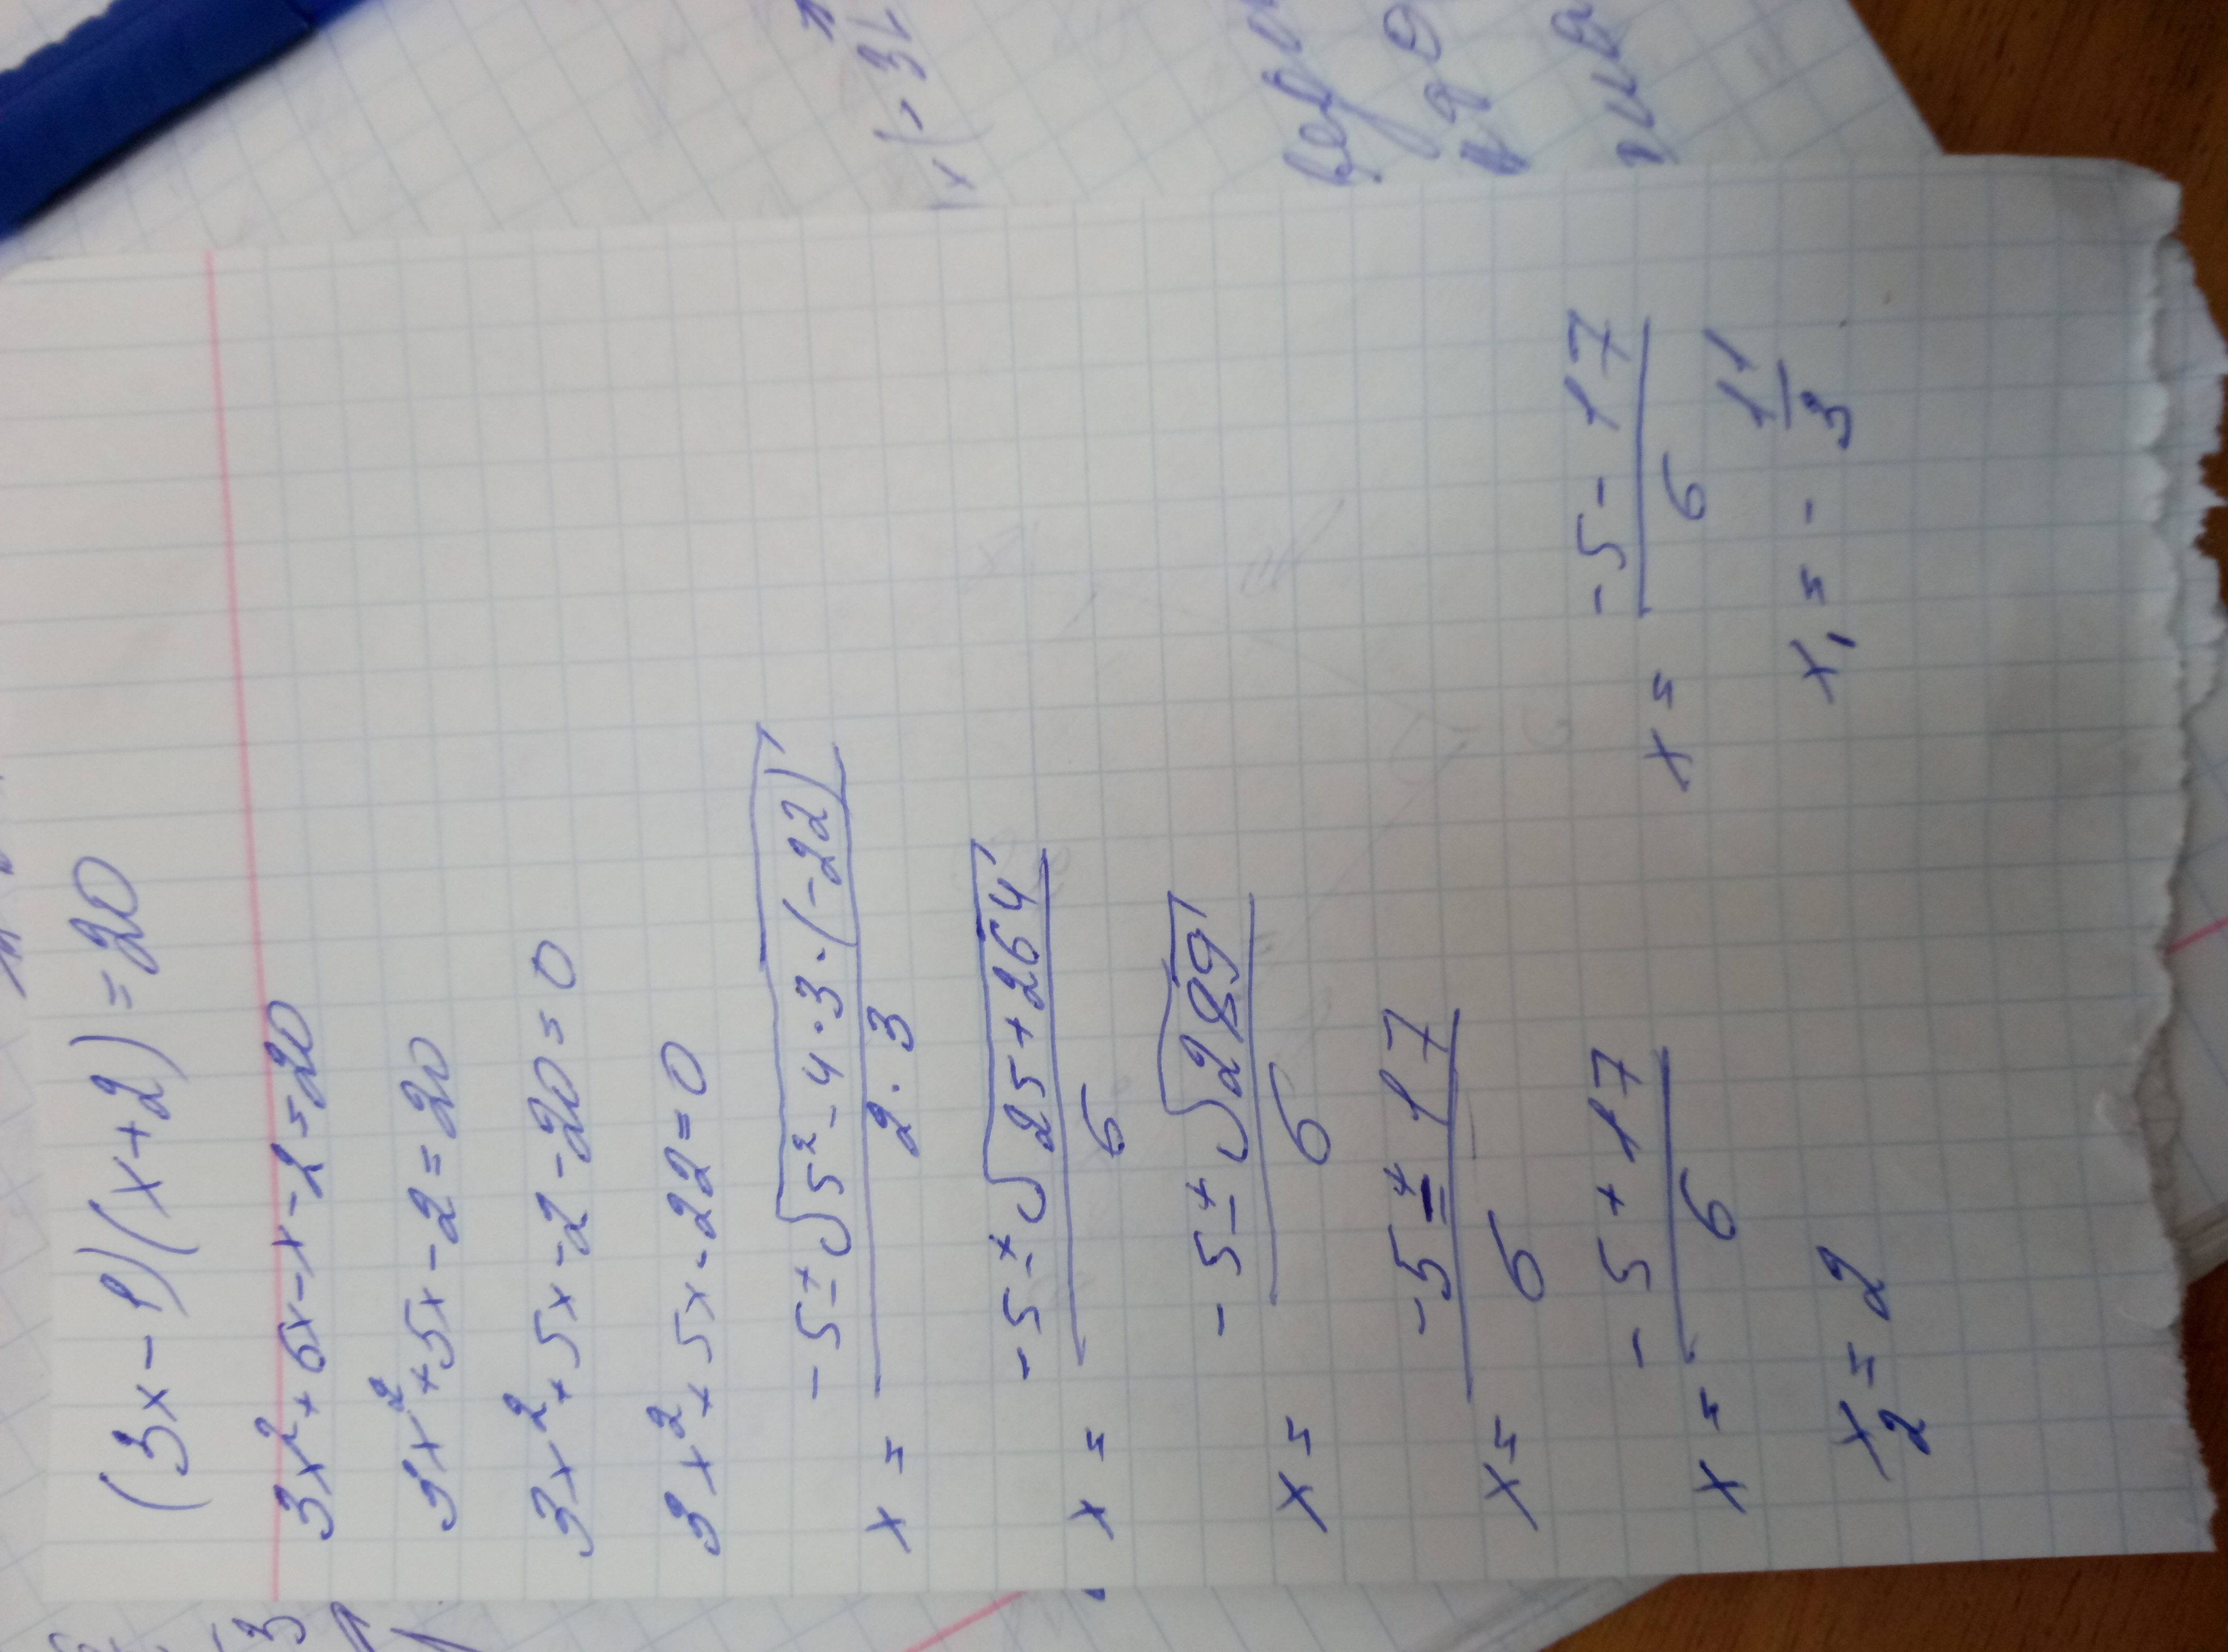 (3x-1)(x+2)=20
3x²+6x-x-2=20
3x²+5x-2=20
3x²+5x-2-20=0
3x²+5x-22=0
x = (-5±√(5²-4·3·(-22)))/(2·3)
x = (-5±√(25+264))/6
x = (-5±√289)/6
x = (-5±17)/6
x = (-5+17)/6    x = (-5-17)/6
x₂=2    x₁=-11/3